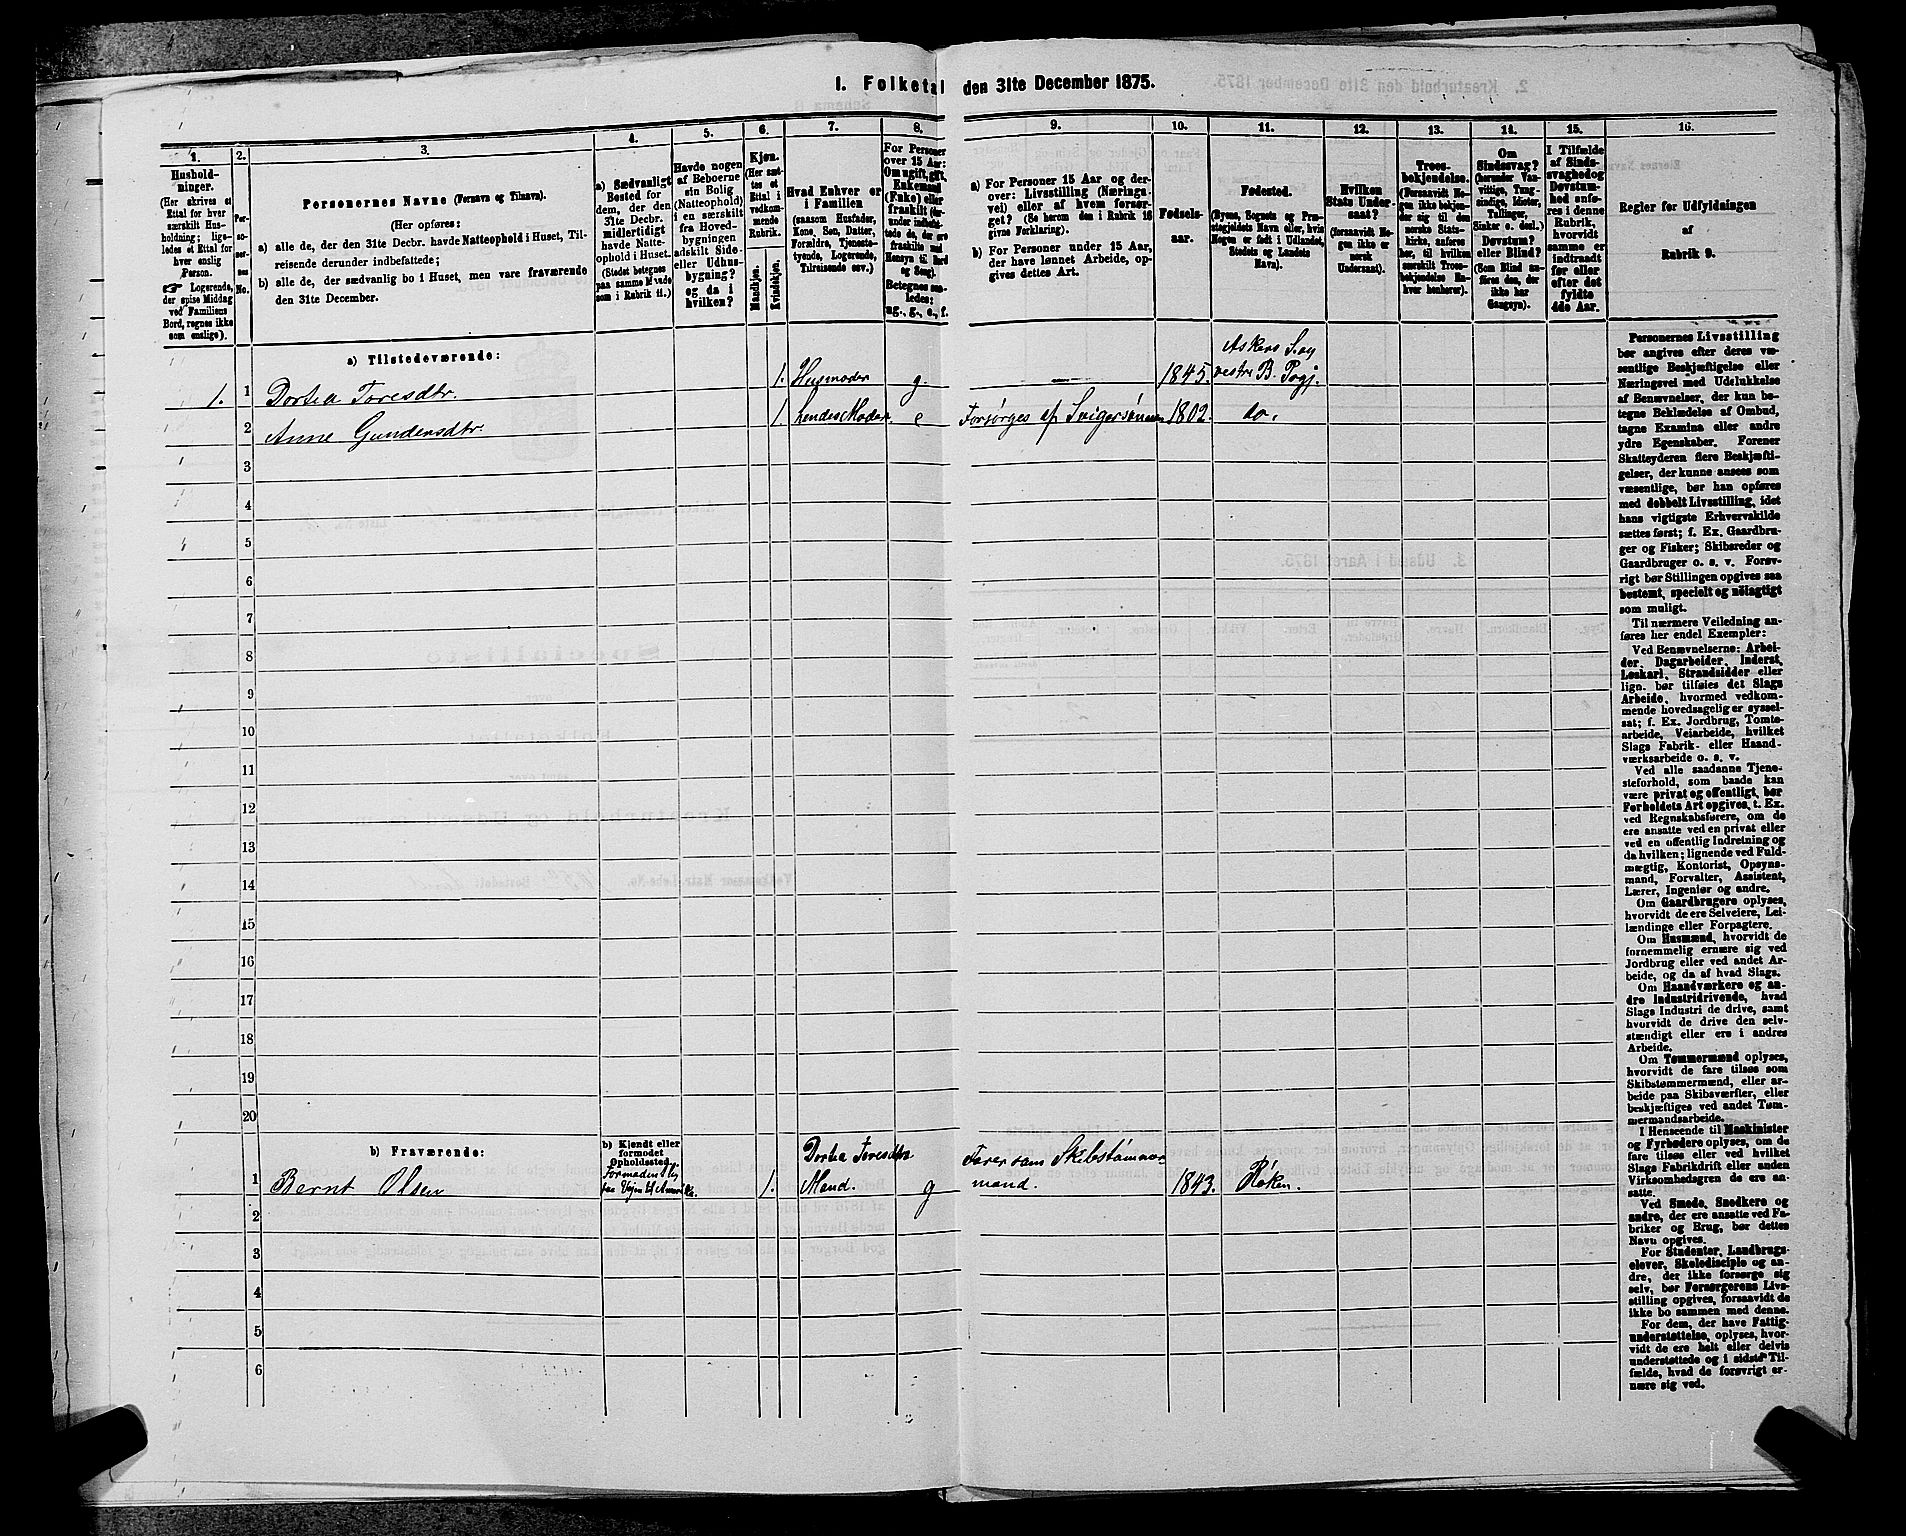 1. Folketal den 31te December 1875.
1.
2.
3.
4.
5.
6.
7.
8.
9.
10.
11.
12.
13.
14.
15.
16.
Hushold-
ninger.
(Her skrives et
Ettal for hver
særskilt Hus-
holdning; lige-
ledes et Ettal for
hver enslig
Person.
☛ Logerende,
der spise Middag
ved Familiens
Bord, regnes ikke
som enslige).
Per-
so-
ner-
nes
No.
Personernes Navne (Fornavn og Tilnavn).
(Her opføres:
a) alle de, der den 31te Decbr. havde Natteophold i Huset, Til-
reisende derunder indbefattede;
b) alle de, der sædvanlig bo i Huset, men vare fraværende
den 31te December.
a) Sædvanligt
Bosted for
dem, der den
31te Decbr.
midlertidigt
havde Natte-
ophold i Huset.
(Stedet betegnes
paa samme Maade
som i Rubrik 11.)
Havde nogen
af Beboerne
sin Bolig
(Natteophold)
i en særskilt
fra Hoved-
bygningen
adskilt Side-
eller Udhus-
bygning?
og da i
hvilken?
Kjøn.
(Her sæt-
tes et
Ettal i
vedkom-
mende
Rubrik.
Mandkjøn.
Kvindekjøn.
Hvad Enhver er
i Familien
(saasom Husfader,
Kone, Søn, Datter,
Forældre, Tjeneste-
tyende, Logerende,
Tilreisende osv.)
For Personer
over 15 Aar:
Om ugift, gift,
Enkemand
(Enke) eller
fraskilt
Betegnes saa-
ledes:
ug., g., e., f.
a) For Personer 15 Aar og der-
over: Livsstilling (Nærings-
vei) eller af hvem forsør-
get? (Se herom den i Rubrik 16
givne Forklaring).
b) For Personer under 15 Aar,
der have lønnet Arbeide, op-
gives dettes Art.
Fødsels-
aar.
Fødested.
(Byens, Sognets og Præ-
stegjeldets Navn eller, hvis
Nogen er født i Udlandet,
Stedets og Landets
Navn).
Hvilken
Stats Under-
saat?
(forsaavidt No-
gen ikke er
norsk
Undersaat).
Troes-
bekjendelse.
(Forsaavidt No-
gen ikke bekjen-
der sig til den
norske Stats-
kirke, anføres
her, til hvilken
særskilt Troes-
bekjendelse En-
hver henhører).
Om
Sindssvag?
(herunder Van-
vittige, Tung-
sindige, Idioter,
Tullinger,
Sinker o. desl.)
Døvstum?
eller Blind?
(Som Blind an-
føres den, der
ikke har
Gangsyn).
I Tilfælde
af Sinds-
svaghed og
Døvstum-
hed anfø-
res i denne
Rubrik,
hvorvidt
samme er
indtraadt
før eller
efter det
fyldte
4de Aar.
Regler for Udfyldningen
af
Rubrik 9.
a) Tilstedeværende:
1. 1 Dortea Toresdtr. 1. Husmoder g. — 1845. Askers S. og
vestre B. Pgj.
2 Anne Gundersdtr. 1. hendes Moder. e Forsørges af Svigersønnen 1802. do.
3
4
5
6
7
8
9
10
11
12
13
14
15
16
17
18
19
20
b) Fraværende:
b) Kjendt eller
formodet
Opholdssted.
Dortea Toresdtrs
1 Bernt Olsen 1. Mand. g Farer som Skibstømmer-
mand. 1843. Røken.
2
3
4
5
6
Personernes Livsstilling
bør angives efter deres væ-
sentlige Beskjæftigelse eller
Næringsvei med Udelukkelse
af Benævnelser, der kun be-
tegne Beklædelse af Ombud,
tagne Examina eller andre
ydre Egenskaber. Forener
Skatteyderen flere Beskjæfti-
gelser, der kunne ansees som
væsentlige, bør han opføres
med dobbelt Livsstilling, idet
hans vigtigste Erhvervskilde
sættes først; f. Ex. Gaardbru-
ger og Fisker; Skibsreder og
Gaardbruger o. s. v. Forøv-
rigt bør Stillingen opgives saa
bestemt, specielt og nøiagtigt
som muligt.
Til nærmere Veiledning an-
føres her endel Exempler:
Ved Benævnelserne: Arbei-
der, Dagarbeider, Inderst,
Løskarl, Strandsidder eller
lign. bør tilføies det Slags
Arbeide, hvormed vedkom-
mende hovedsagelig er syssel-
sat; f. Ex. Jordbrug, Tomte-
arbeide, Veiarbeide, hvilket
Slags Fabrik- eller Haand-
værksarbeide o. s. v.
Ved alle saadanne Tjene-
steforhold, som baade kan
være privat og offentligt, bør
Forholdets Art opgives, t. Ex.
ved Regnskabsførere, om de
ere ansatte ved en privat eller
ved en offentlig Indretning og
da hvilken; lignende ved Fuld-
mægtig, Kontorist, Opsyns-
mand, Forvalter, Assistent,
Lærer, Ingeniør og andre.
Om Gaardbrugere oplyses,
hvorvidt de ere Selveiere, Lei-
lændinge eller Forpagtere.
Om Husmænd, hvorvidt de
fornemmelig ernære sig ved
Jordbrug eller ved andet Ar-
beide, og da af hvad Slags.
Om Haandværkere og an-
dre Industridrivende, hvad
Slags Industri de drive, samt
hvorvidt de drive den selv-
stændigt eller ere i andres
Arbeide.
Om Tømmermænd oplyses,
hvorvidt de fare tilsøs som
Skibstømmermænd, eller ar-
beide paa Skibsværfter, eller
beskjæftiges ved andet Tøm-
mermandsarbeide.
I Henseende til Maskinister
og Fyrbødere oplyses, om de
fare tilsøs eller ved hvilket
Slags Fabrikdrift eller anden
Virksomhedsgren de ere an-
satte.
Ved Smede, Snedkere og
andre, der ere ansatte ved Fa-
briker og Brug, bør dettes
Navn opgives.
For Studenter, Landbrugs-
elever, Skoledisciple og an-
dre, der ikke forsørge sig
selv, bør Forsørgerens Livs-
stilling opgives, forsaavidt de
ikke bo sammen med denne.
For dem, der have Fattig-
understøttelse, oplyses, hvor-
vidt de ere helt eller delvis
understøttede og i sidste Til-
fælde, hvad de forøvrigt er-
nære sig ved.